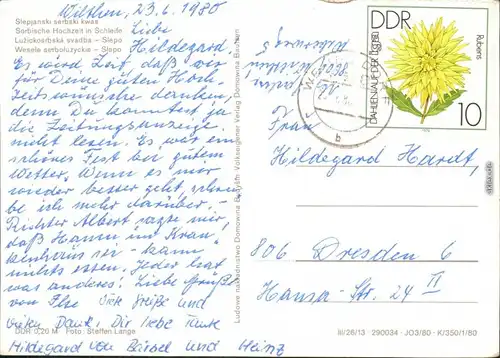 Wilthen, 23.6.1980
Slepjanski serbski kwas
Sorbische Hochzeit in Schleife
Łużickoserbska svadba – Slepo
Wesele serbołużyckie – Slepo
Liebe
Hildegard
Es wird Zeit, daß wir
für Deine guten Hoch-
zeitswünsche danken,
denn Du konntest ja
die Zeitungsanzeige
nicht lesen. Es war ein
schönes Fest bei gutem
Wetter. Wenn es mir
wieder besser geht, schrei-
be ich mehr darüber. –
Richter Albert sagte mir,
daß Hanni im Kran-
kenhaus sei – kann
nichts essen. Jeder hat
was anderes! Liebe Grüße
von Ilse Viele Grüße und
vielen Dank, Dir liebe Tante
Hildegard von Bärbel und Heinz
DDR 0,20 M Foto: Steffen Lange
Ludowe nakładnistwo Domowina Budyšin Volkseigener Verlag Domowina Bautzen
DDR
DAHLIEN AUF DER iga
Rubens
10
b
Frau
Hildegard Hardt,
806 Dresden 6
Hansa-Str. 24 II
III/26/13 · 290034 · JO3/80 · K/350/1/80